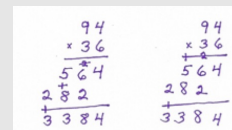 94
× 36
2
564
+
282
+
3384
94
× 36
+ 2
564
282
+
3384